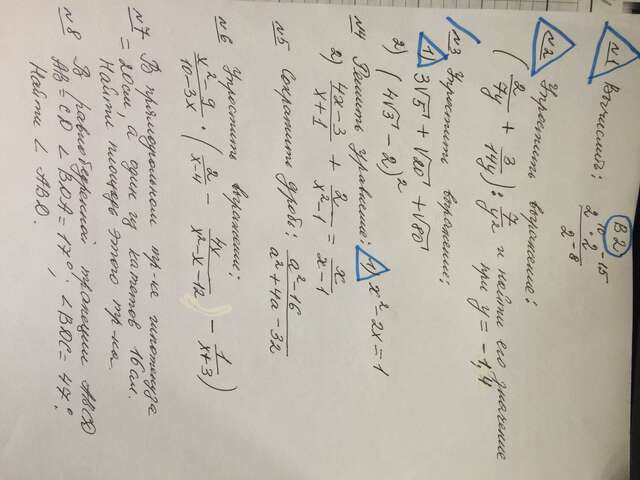 В2
№1 Вычислить: (2^10 · 2^-15) / 2^-8
№2 Упростить выражение:
(2/7y + 3/14y) : 7/y² и найти его значение
при y = -1,4
№3 Упростить выражения:
1) 3√5 + √20 + √80
2) (4√3 - 2)²
№4 Решить уравнение: 1) x² - 2x = -1
2) (4x-3)/(x+1) + 2/(x²-1) = x/(x-1)
№5 Сократить дробь: (a²-16)/(a²+4a-32)
№6 Упростить выражение:
(x²-9)/(10-3x) · (2/(x-4) - 4x/(x²-x-12) - 1/(x+3))
№7 В прямоугольном тр-ке гипотенуза
= 20см, а один из катетов 16 см.
Найти площадь этого тр-ка.
№8 В равнобедренной трапеции ABCD
AB = CD ∠BDA = 17°. ∠BDC = 47°.
Найти ∠ABD.